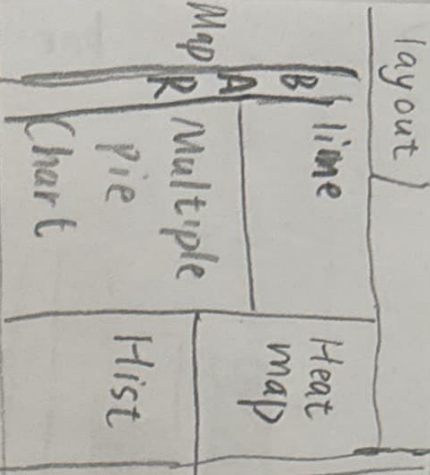 layout
Map
B
A
R
Time
Multiple
Pie
Chart
Heat
map
Hist